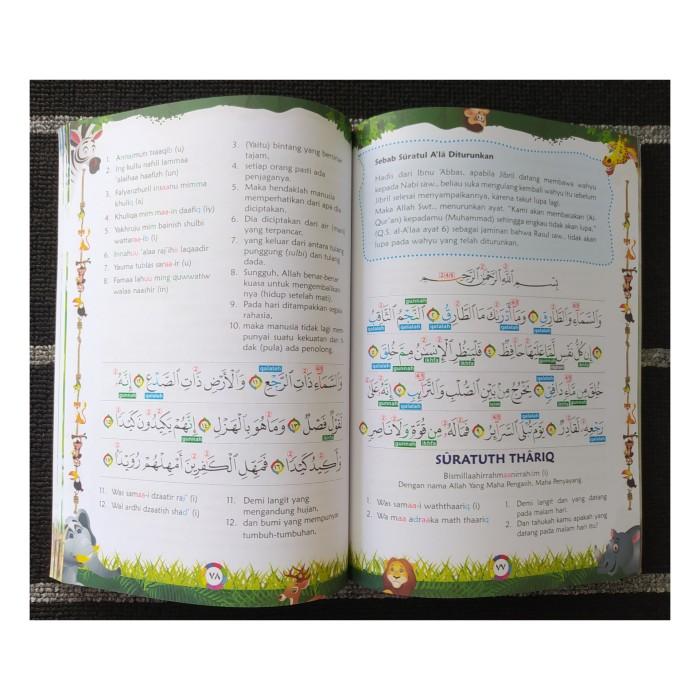 Sebab Sūratul A'lā Diturunkan
Hadis dari Ibnu 'Abbas, apabila Jibril datang membawa wahyu
kepada Nabi saw., beliau suka mengulang kembali wahyu itu sebelum
Jibril selesai menyampaikannya, karena takut lupa lagi.
Maka Allah Swt... menurunkan ayat, "Kami akan membacakan (Al-
Qur'an) kepadamu (Muhammad) sehingga engkau tidak akan lupa,"
(Q.S. al-A'laa ayat 6) sebagai jaminan bahwa Rasul saw., tidak akan
lupa pada wahyu yang telah diturunkan.
بِسْمِ اللّٰهِ الرَّحْمٰنِ الرَّحِيْمِ
وَالسَّمَاۤءِ وَالطَّارِقِۙ ۝١ وَمَآ اَدْرٰىكَ مَا الطَّارِقُۙ ۝٢ النَّجْمُ الثَّاقِبُۙ ۝٣
اِنْ كُلُّ نَفْسٍ لَّمَّا عَلَيْهَا حَافِظٌۗ ۝٤ فَلْيَنْظُرِ الْاِنْسَانُ مِمَّ خُلِقَۗ ۝٥
خُلِقَ مِنْ مَّاۤءٍ دَافِقٍۙ ۝٦ يَّخْرُجُ مِنْۢ بَيْنِ الصُّلْبِ وَالتَّرَاۤىِٕبِۗ ۝٧ اِنَّهٗ عَلٰى
رَجْعِهٖ لَقَادِرٌۗ ۝٨ يَوْمَ تُبْلَى السَّرَاۤىِٕرُۙ ۝٩ فَمَا لَهٗ مِنْ قُوَّةٍ وَّلَا نَاصِرٍۗ ۝١٠
SŪRATUTH THĀRIQ
Bismillaahirrahmaanirrahiim (i)
Dengan nama Allah Yang Maha Pengasih, Maha Penyayang.
1. Was samaa-i waththaariq (i)
2. Wa maa adraaka math thaariq
1. Demi langit dan yang datang
pada malam hari.
2. Dan tahukah kamu apakah yang
datang pada malam hari itu?
٧٧
1. Annajmuts tsaaqib (u)
2. Ing kullu nafsil lammaa
'alaihaa haafizh (u)
3. Falyanzhuril insaanu mimma
khuliq (a)
4. Khuliqa mim maa-in daafiq (iy)
5. Yakhruju mim bainish shulbi
wattaraa-ib (i)
6. Innahuu 'alaa raj'ihii laqaadir
7. Yauma tublas saraa-ir (u)
8. Famaa lahuu ming quwwatiw
walaa naashir (in)
3. (Yaitu) bintang yang bersinar
tajam,
4. setiap orang pasti ada
penjaganya.
5. Maka hendaklah manusia
memperhatikan dari apa dia
diciptakan.
6. Dia diciptakan dari air (mani)
yang terpancar,
7. yang keluar dari antara tulang
punggung (sulbi) dan tulang
dada.
8. Sungguh, Allah benar-benar
kuasa untuk mengembalikan
nya (hidup setelah mati).
9. Pada hari ditampakkan segala
rahasia,
10. maka manusia tidak lagi mem
punyai suatu kekuatan dan ti
dak (pula) ada penolong.
وَالسَّمَاۤءِ ذَاتِ الرَّجْعِۙ ۝١١ وَالْاَرْضِ ذَاتِ الصَّدْعِۙ ۝١٢ اِنَّهٗ
لَقَوْلٌ فَصْلٌۙ ۝١٣ وَّمَا هُوَ بِالْهَزْلِۗ ۝١٤ اِنَّهُمْ يَكِيْدُوْنَ كَيْدًاۙ ۝١٥
وَّاَكِيْدُ كَيْدًاۖ ۝١٦ فَمَهِّلِ الْكٰفِرِيْنَ اَمْهِلْهُمْ رُوَيْدًا ۝١٧
11. Was samaa-i dzaatir raj' (i)
12. Wal ardhi dzaatish shad' (i)
11. Demi langit yang
mengandung hujan,
12. dan bumi yang mempunyai
tumbuh-tumbuhan,
٧٨